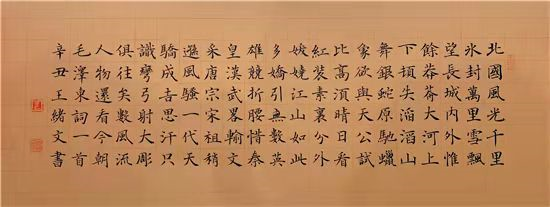 北國風光千里
氷封萬里雪飄
望長城內外惟
餘莽莽大河上
下頓失滔滔山
舞銀蛇原馳蠟
象欲與天公試
比高須晴日看
紅裝素裹分外
妖嬈江山如此
多嬌引無數英
雄競折腰惜秦
皇漢武略輸文
采唐宗宋祖稍
遜風騷一代天
驕成吉思汗只
識彎弓射大彫
俱往矣數風流
人物還看今朝
毛澤東詞一首
辛丑王緒文書